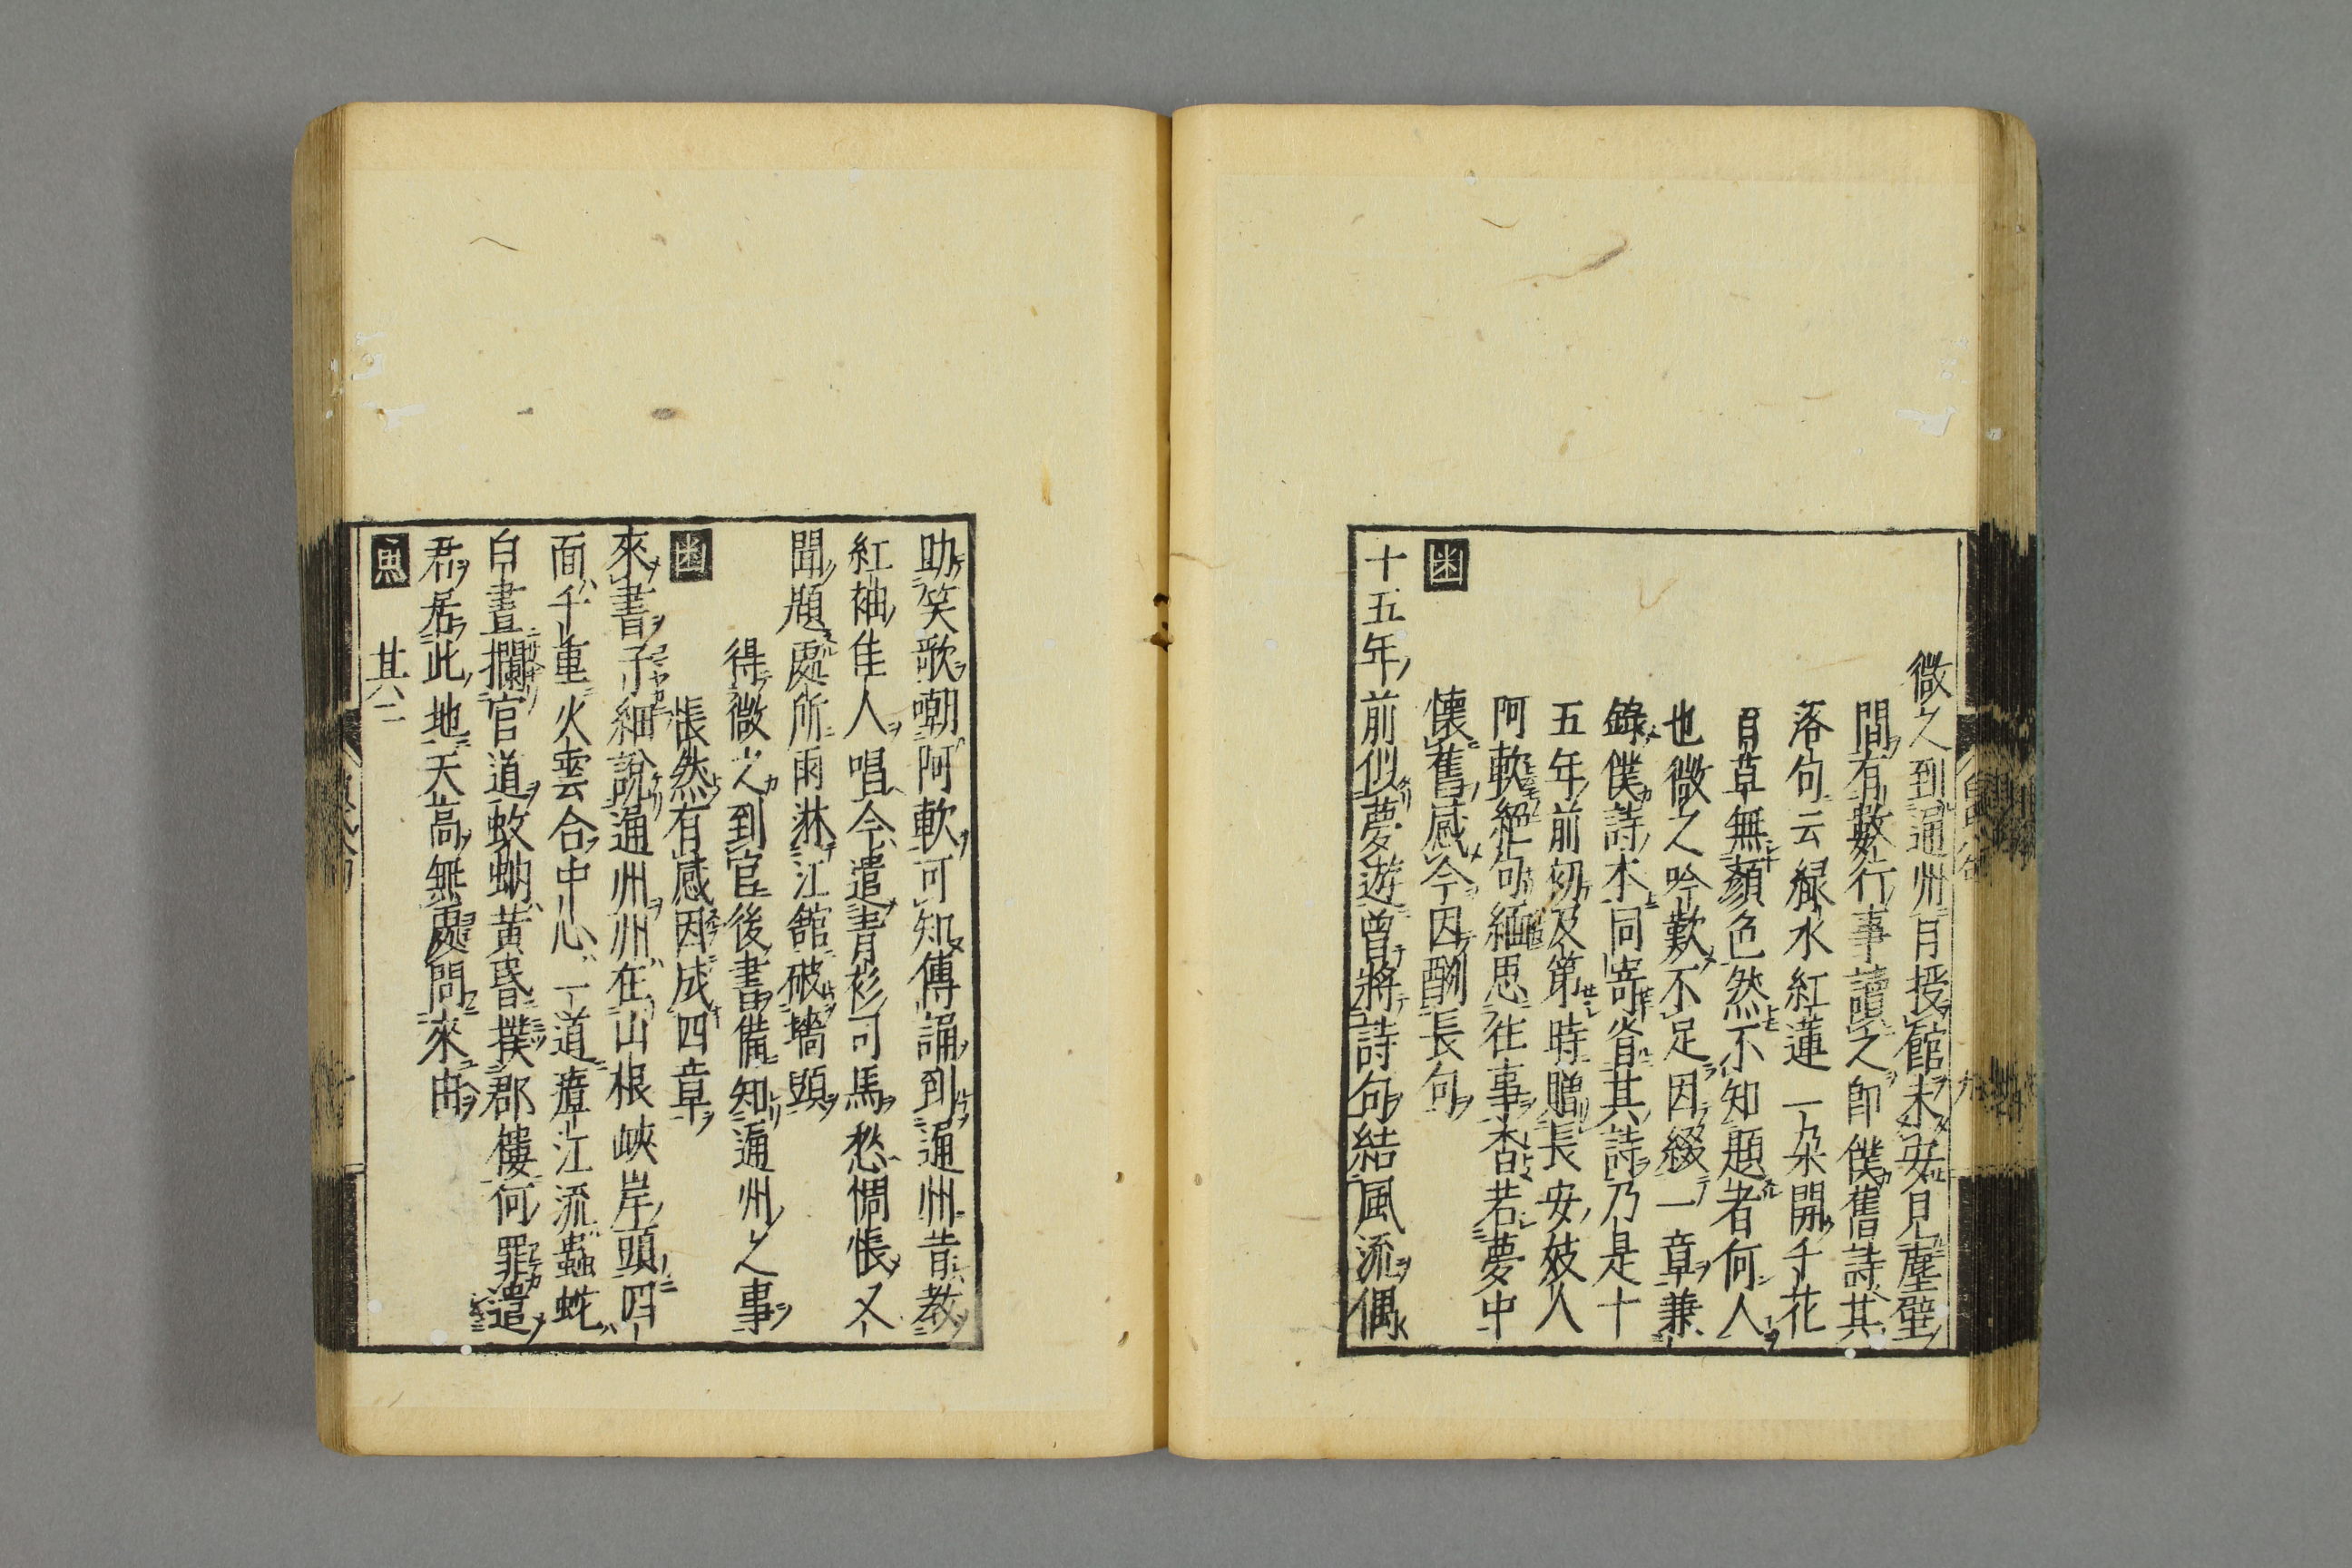 微之到通州日授館未安見塵壁
間有數行事讀之即僕舊詩其
落句云綠水紅蓮一朶開千花
百草無顏色然不知題者何人
也微之吟歎不足因綴一章兼
錄僕詩本同寄省其詩乃是十
五年前初及第時贈長安妓人
阿軟絕句緬思往事杳若夢中
懷舊感今因酬長句
十五年前似夢遊曾將詩句結風流偶
助笑歌嘲阿軟可知傳誦到通州昔教
紅袖佳人唱今遣青衫司馬愁惆悵又
聞題處所雨淋江館破墻頭
得微之到官後書備知通州之事
悵然有感因成四章
來書子細說通州州在山根峽岸頭四
面千重火雲合中心一道瘴江流蟲蛇
白晝攔官道蚊蚋黃昏撲郡樓何罪遣
君居此地天高無處問來由
其二